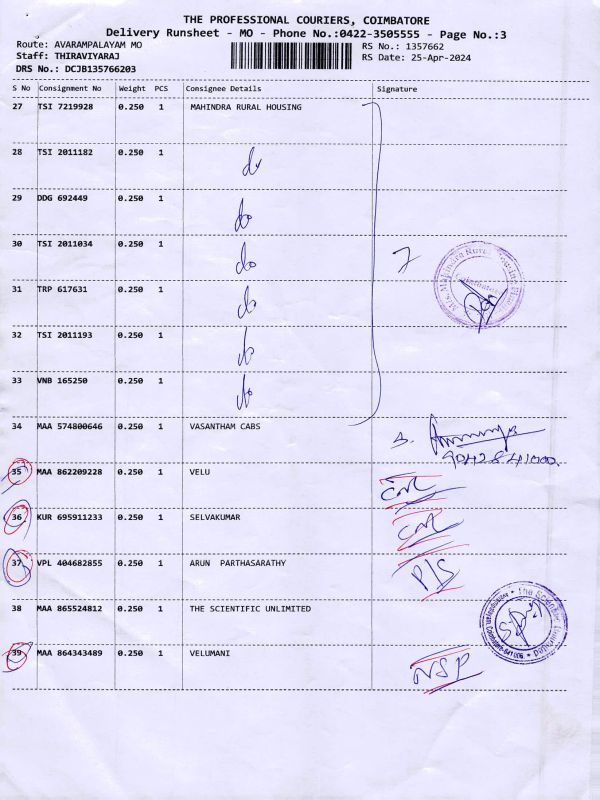 THE PROFESSIONAL COURIERS, COIMBATORE
Delivery Runsheet - MO - Phone No.:0422-3505555 - Page No.:3
Route: AVARAMPALAYAM MO
RS No.: 1357662
Staff: THIRAVIYARAJ
RS Date: 25-Apr-2024
DRS No.: DCJB135766203
S No Consignment No Weight PCS Consignee Details Signature
27 TSI 7219928 0.250 1 MAHINDRA RURAL HOUSING
28 TSI 2011182 0.250 1 do
29 DDG 692449 0.250 1 do
30 TSI 2011034 0.250 1 do
31 TRP 617631 0.250 1 do
32 TSI 2011193 0.250 1 do
33 VNB 165250 0.250 1 do
7
34 MAA 574800646 0.250 1 VASANTHAM CABS
35 MAA 862209228 0.250 1 VELU
36 KUR 695911233 0.250 1 SELVAKUMAR
37 VPL 404682855 0.250 1 ARUN PARTHASARATHY P/S
38 MAA 865524812 0.250 1 THE SCIENTIFIC UNLIMITED
39 MAA 864343489 0.250 1 VELUMANI NSP